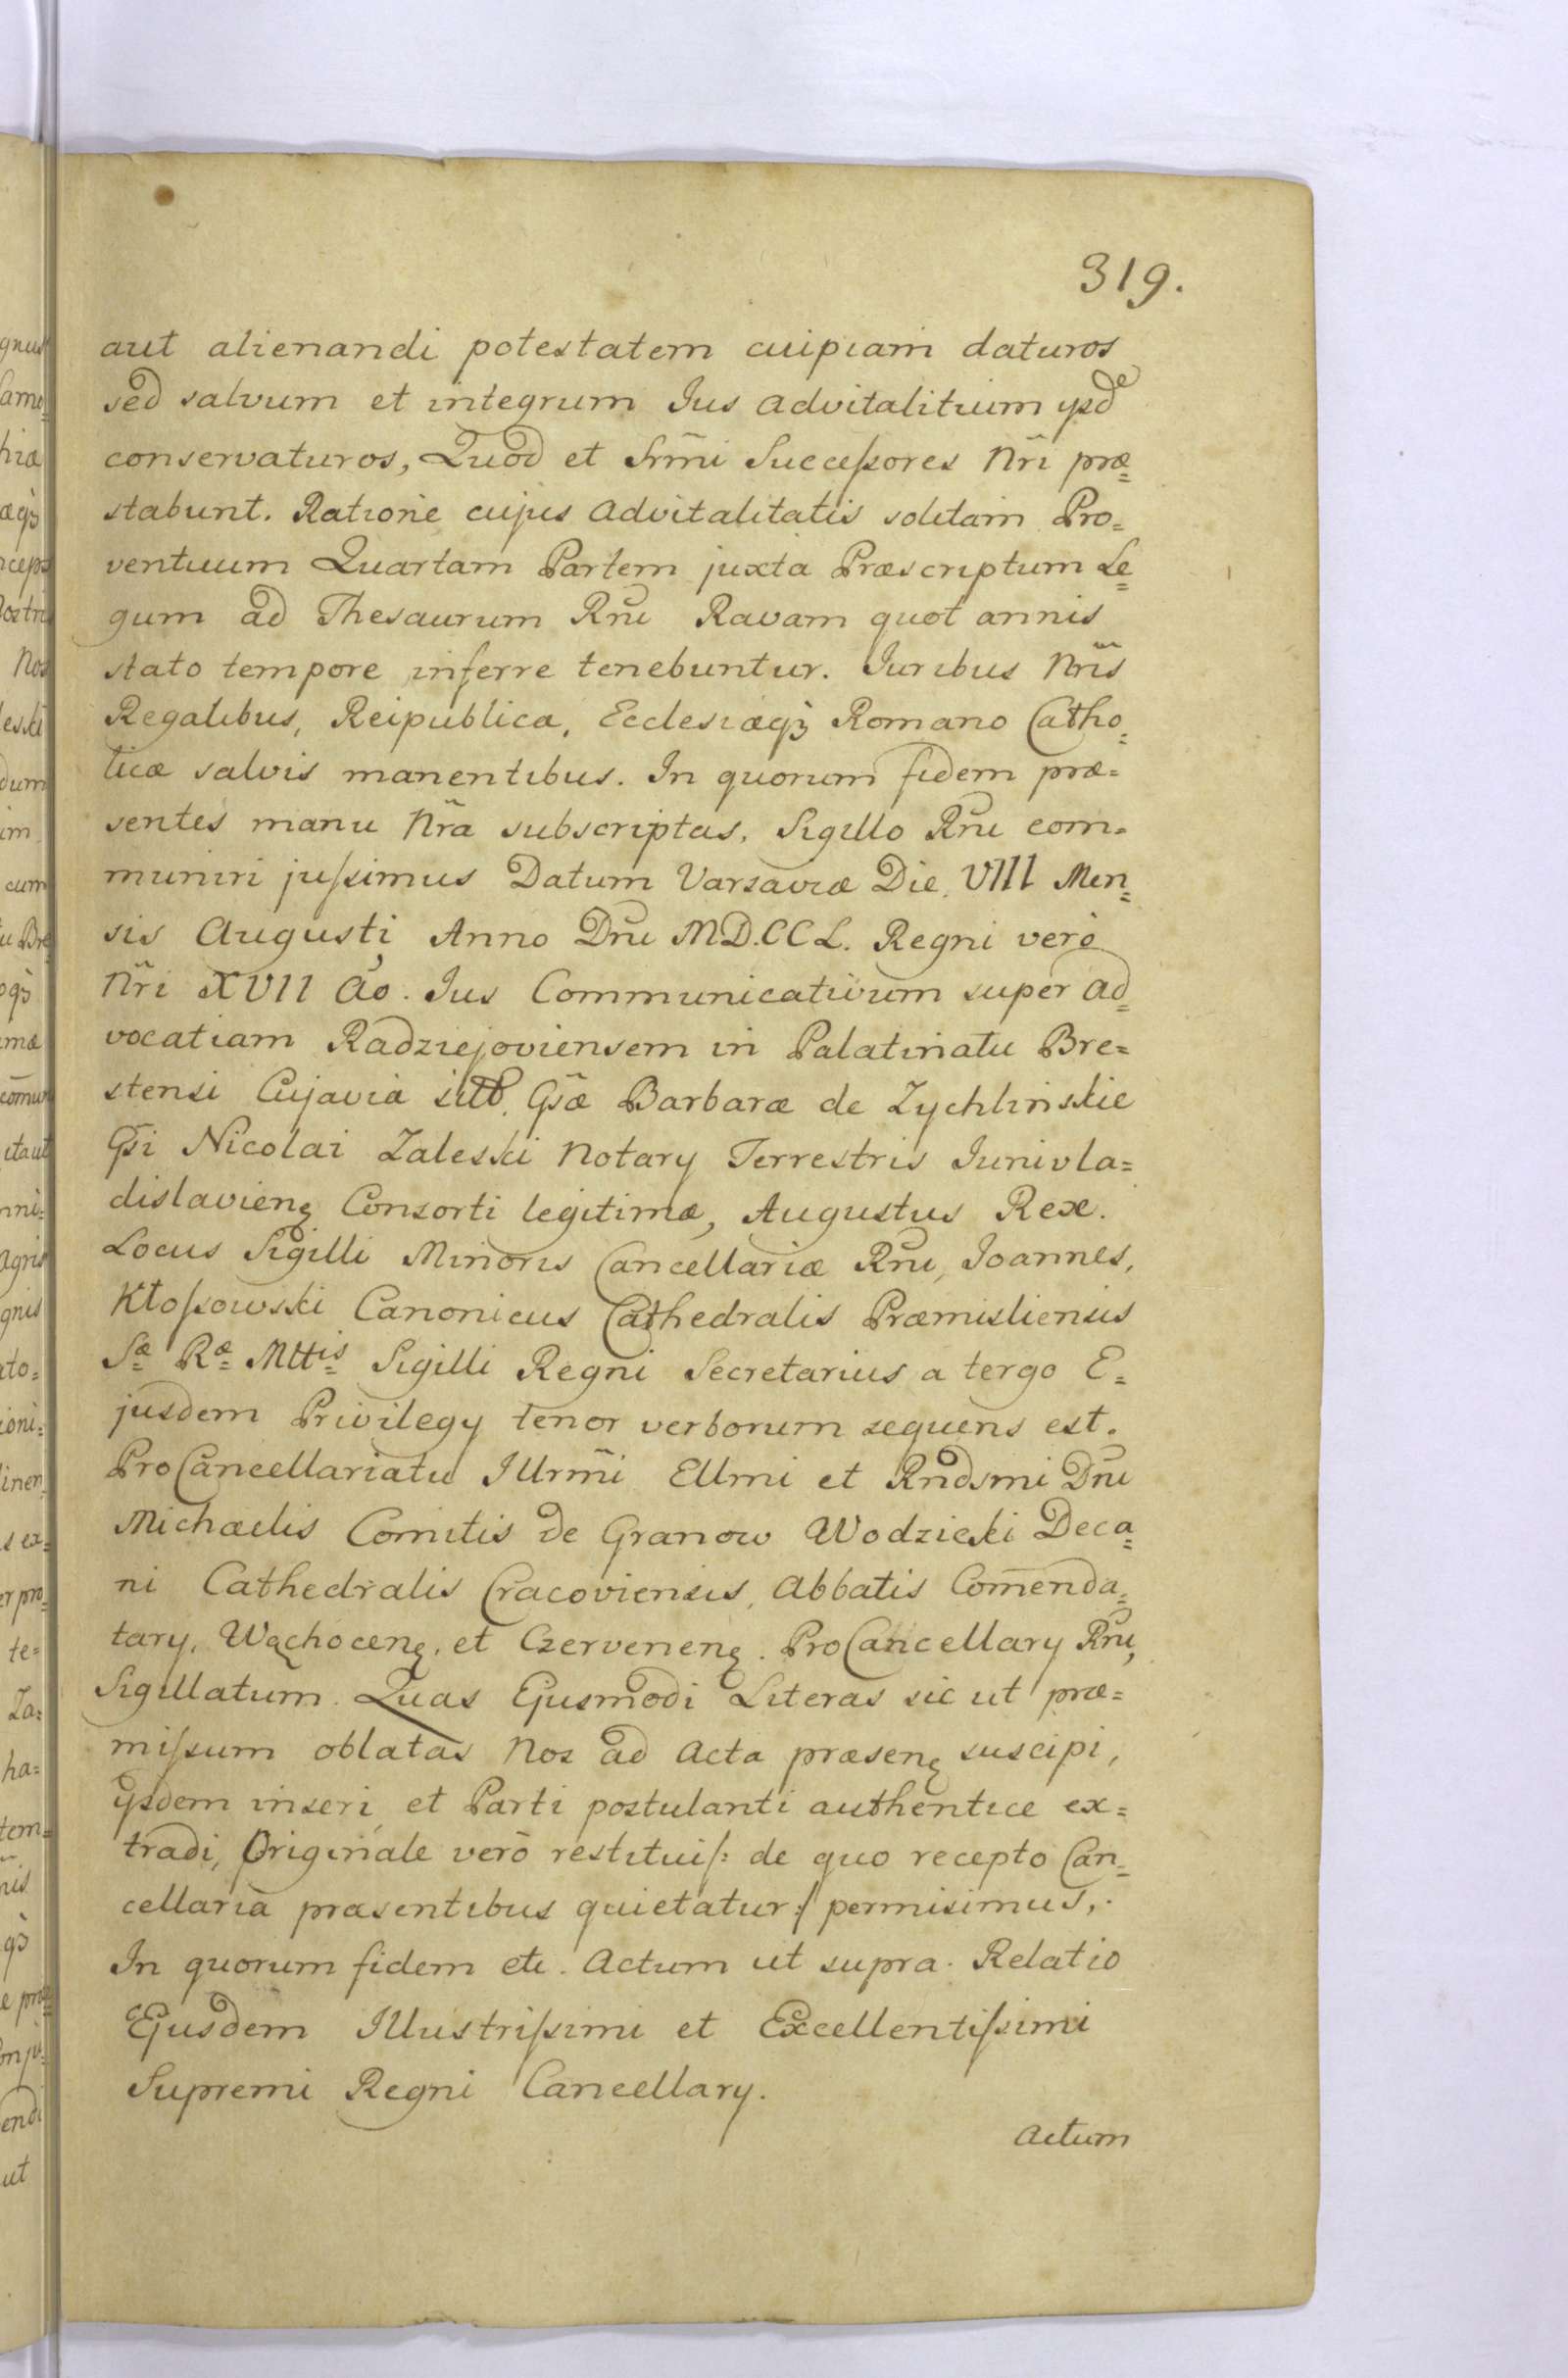 319.
aut alienandi potestatem cuipiam daturos
sed salvum et integrum Jus advitalitium ysdē
conservaturos, Quod et Srm̃i Succeſsores Nr̃i præ=
stabunt. Ratione cujus advitalitatis solitam Pro=
ventuum Quartam Partem juxta Præscriptum Le=
gum ad Thesaurum Rñi Ravam quot annis
stato tempore inferre tenebuntur. Juribus Nr̃is
Regalibus, Reipublica, Ecclesiæqꝫ Romano Catho=
licæ salvis manentibus. In quorum fidem præ=
sentes manu Nr̃a subscriptas, Sigillo Rñi com=
muniri juſsimus Datum Varsaviæ Die VIII Men=
sis Augusti, Anno Dñi MD.CCL. Regni verò
Nr̃i XVII Aõ. Jus Communicativum super ad=
vocatiam Radziejoviensem in Palatinatu Bre=
stensi Cujavia Gs̃æ Barbaræ de Zychlinskie
Gs̃i Nicolai Zaleski Notary Terrestris Junivla=
dislavienꝫ Consorti legitimæ, Augustus Rex.
Locus Sigilli Minoris Cancellariæ Rñi, Joannes,
Kłoſsowski Canonicus Cathedralis Præmisliensis
Sæ Ræ Mttis Sigilli Regni Secretarius a tergo E=
jusdem Privilegy tenor verborum sequens est.
ProCancellariatu Illrm̃i Ellmi et Rndsmi Dñi
Michaelis Comitis de Granow Wodzicki Deca=
ni Cathedralis Cracoviensis, Abbatis Com̃enda=
tary, Wąchocenꝫ, et Czervenenꝫ. ProCancellary Rñi,
Sigillatum. Quas Ejusmodi Literas sic ut præ=
miſsum oblatas Nos ad Acta præsenꝫ suscipi,
ijsdem inseri, et Parti postulanti authentice ex=
tradi, Originale verò restituiſ: de quo recepto Can=
cellaria præsentibus quietatur:/ permisimus,.
In quorum fidem etc. Actum ut supra. Relatio
Ejusdem Illustriſsimi et Excellentiſsimi
Supremi Regni Cancellary.
Actum